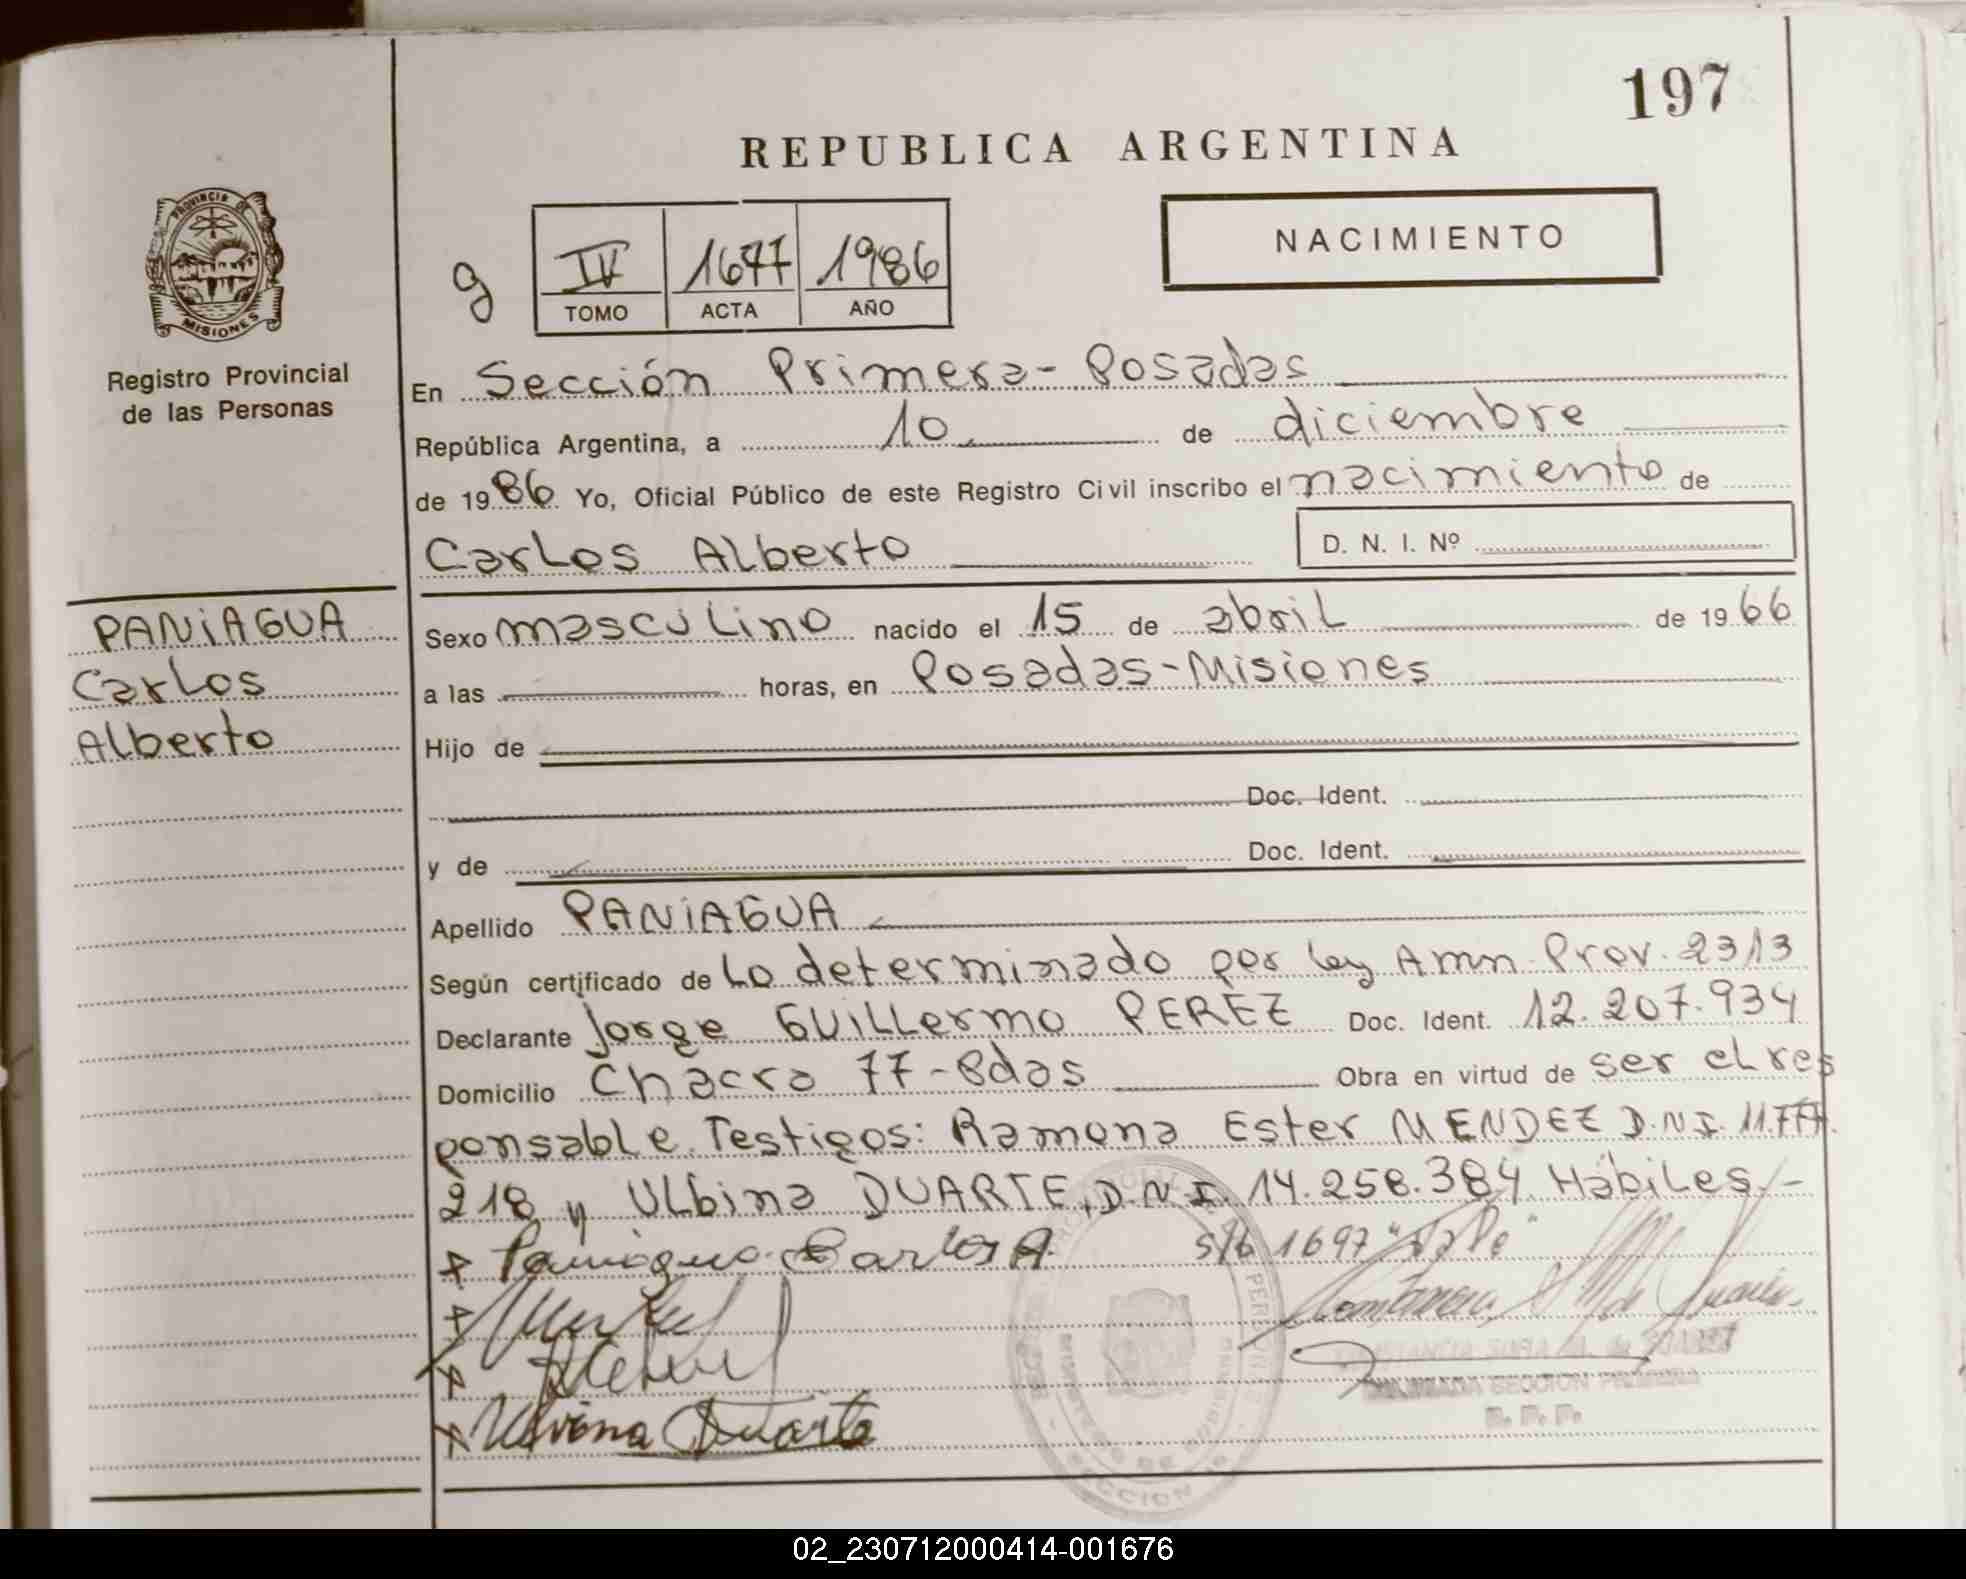 197
REPUBLICA ARGENTINA
PROVINCIA DE
MISIONES
Registro Provincial
de las Personas
g
IV 1677 1986
TOMO ACTA AÑO
NACIMIENTO
En Sección Primera - Posadas
República Argentina, a 10 de diciembre
de 1986 Yo, Oficial Público de este Registro Civil inscribo el nacimiento de
Carlos Alberto D. N. I. Nº
PANIAGUA
Carlos
Alberto
Sexo masculino nacido el 15 de abril de 1966
a las horas, en Posadas-Misiones
Hijo de
Doc. Ident.
y de Doc. Ident.
Apellido PANIAGUA
Según certificado de Lo determinado por ley Amn. Prov. 2313
Declarante Jorge Guillermo PEREZ Doc. Ident. 12.207.934
Domicilio Chacra 77-Pdas Obra en virtud de ser el res
ponsable. Testigos: Ramona Ester MENDEZ D.N.I. 11.777.
218 y Ulbina DUARTE, D.N.I. 14.258.384 Hábiles/-
Paniagua Carlos A. s/b 1697
Ulvina Duarte
SECCION PRIMERA
02_230712000414-001676